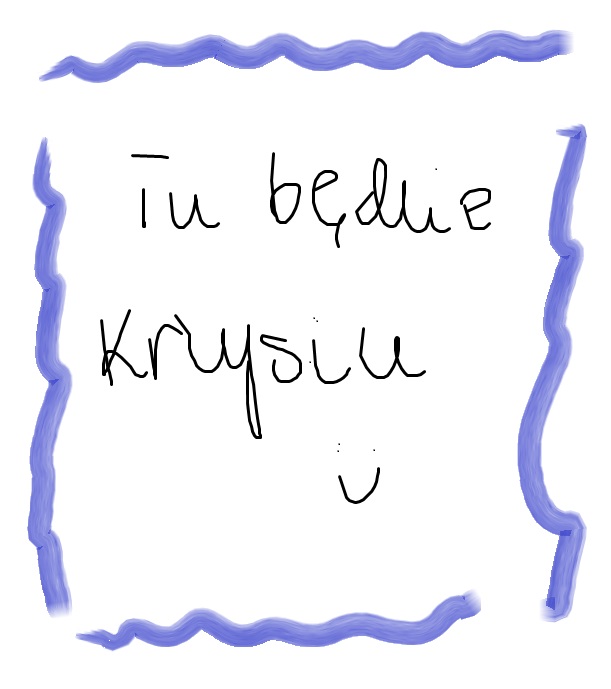 Tu będzie
Krysia